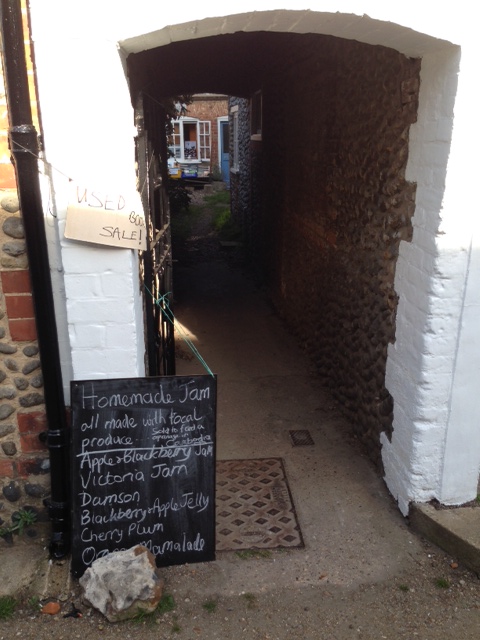 USED
BOO
SALE!
Homemade Jam
all made with local
produce. Sold to fund a
Apple & Blackberry Jam
Victoria Jam
Damson
Blackberry & Apple Jelly
Cherry Plum
Mamalade